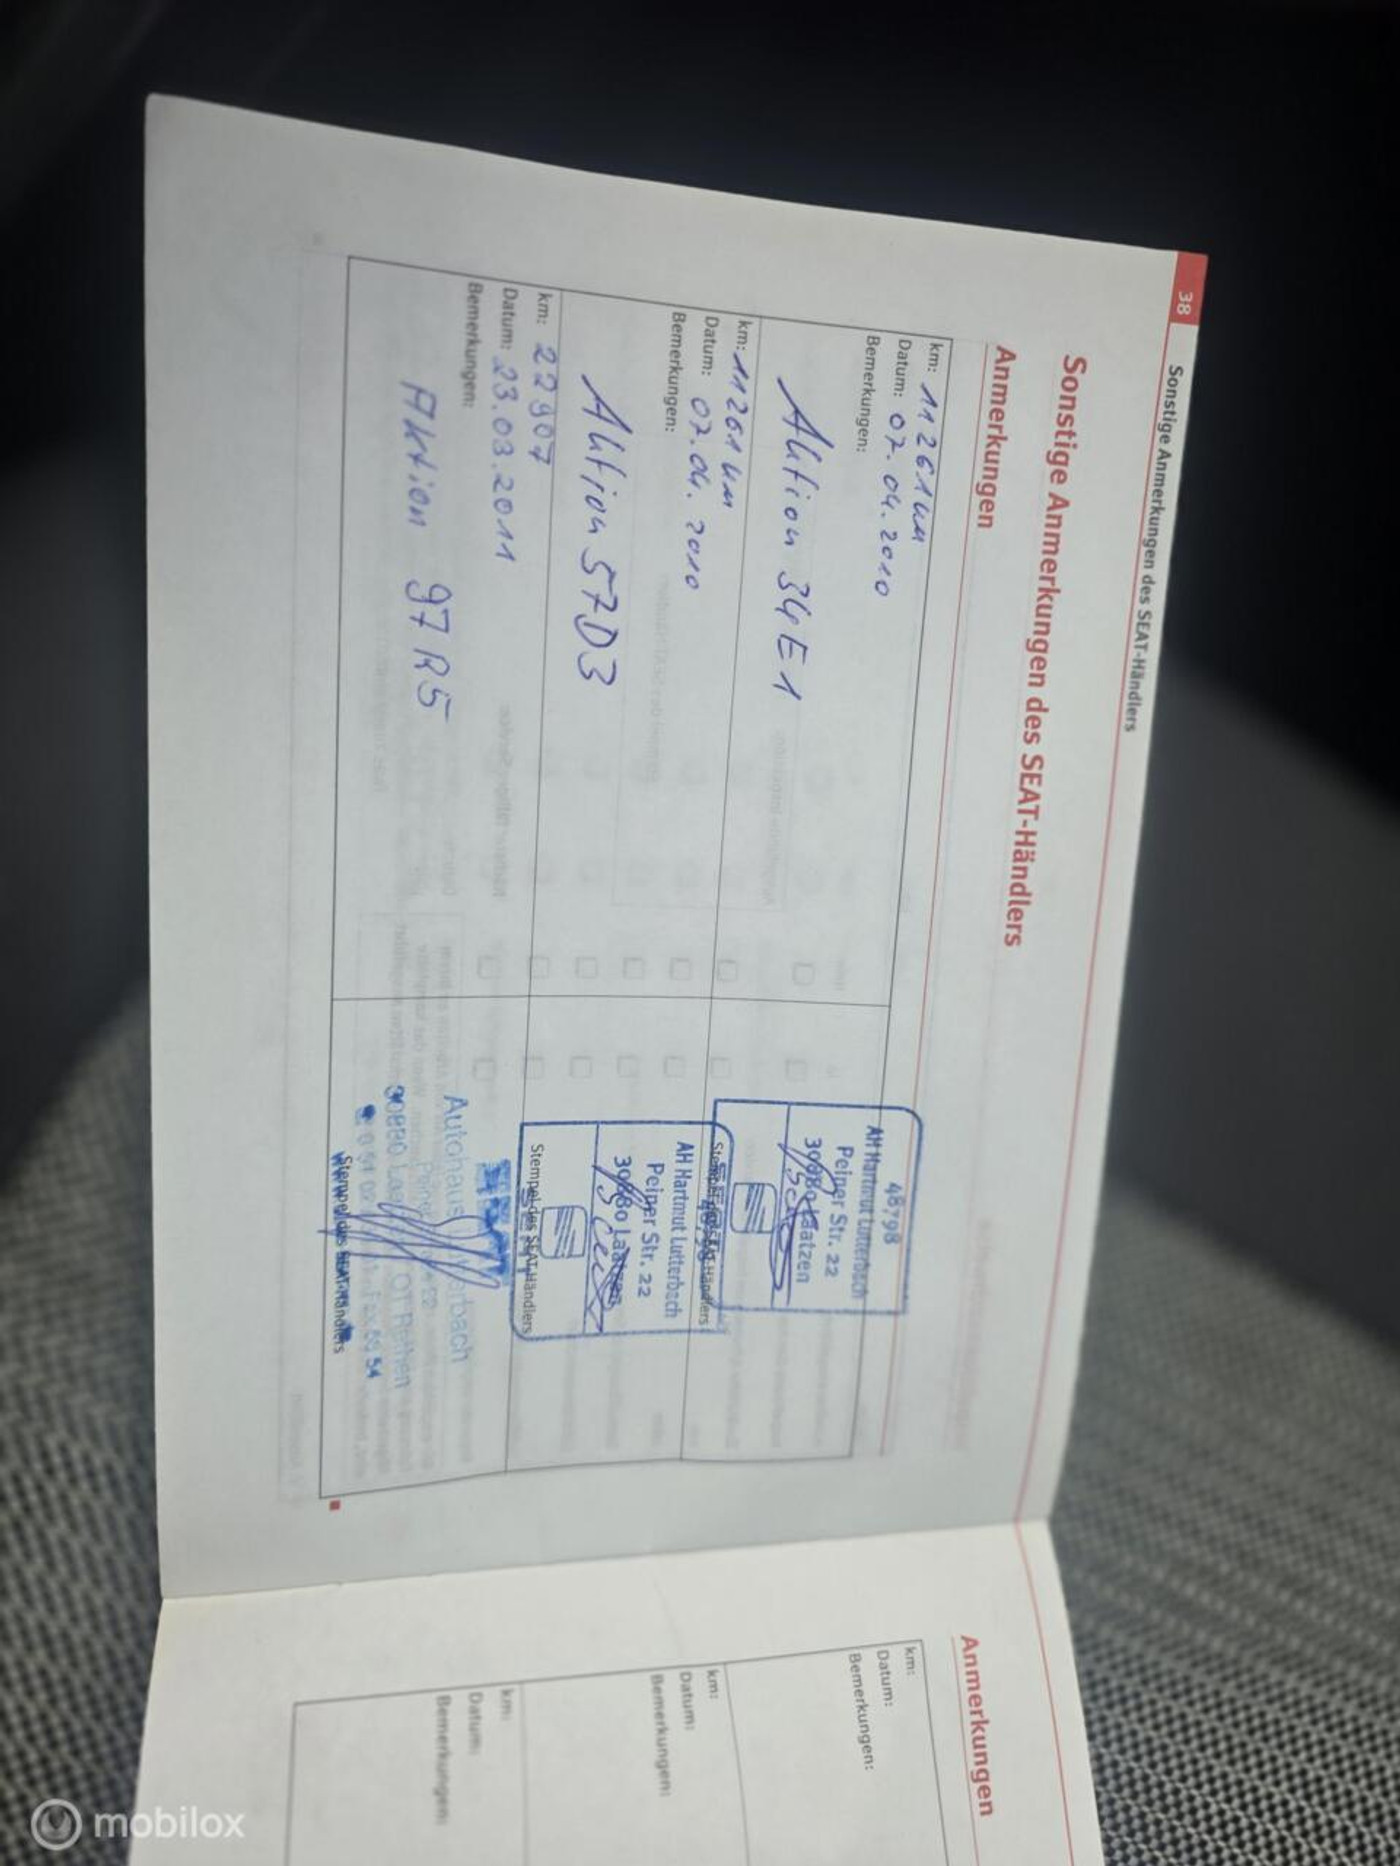 38
Sonstige Anmerkungen des SEAT-Händlers
Sonstige Anmerkungen des SEAT-Händlers
Anmerkungen
km: 11261 km
Datum: 07.04.2010
Bemerkungen:
Aktion 34E1
48798
AH Hartmut Lutterbach
Peiner Str. 22
30880 Laatzen
Stempel des SEAT-Händlers
km: 11261 km
Datum: 07.04.2010
Bemerkungen:
Aktion 57D3
AH Hartmut Lutterbach
Peiner Str. 22
30880 Laatzen
Stempel des SEAT-Händlers
km: 22907
Datum: 23.03.2011
Bemerkungen:
Aktion 97R5
Autohaus
30880 Laatzen OT Rethen
Stempel des SEAT-Händlers
Anmerkungen
km:
Datum:
Bemerkungen:
km:
Datum:
Bemerkungen:
km:
Datum:
Bemerkungen:
mobilox